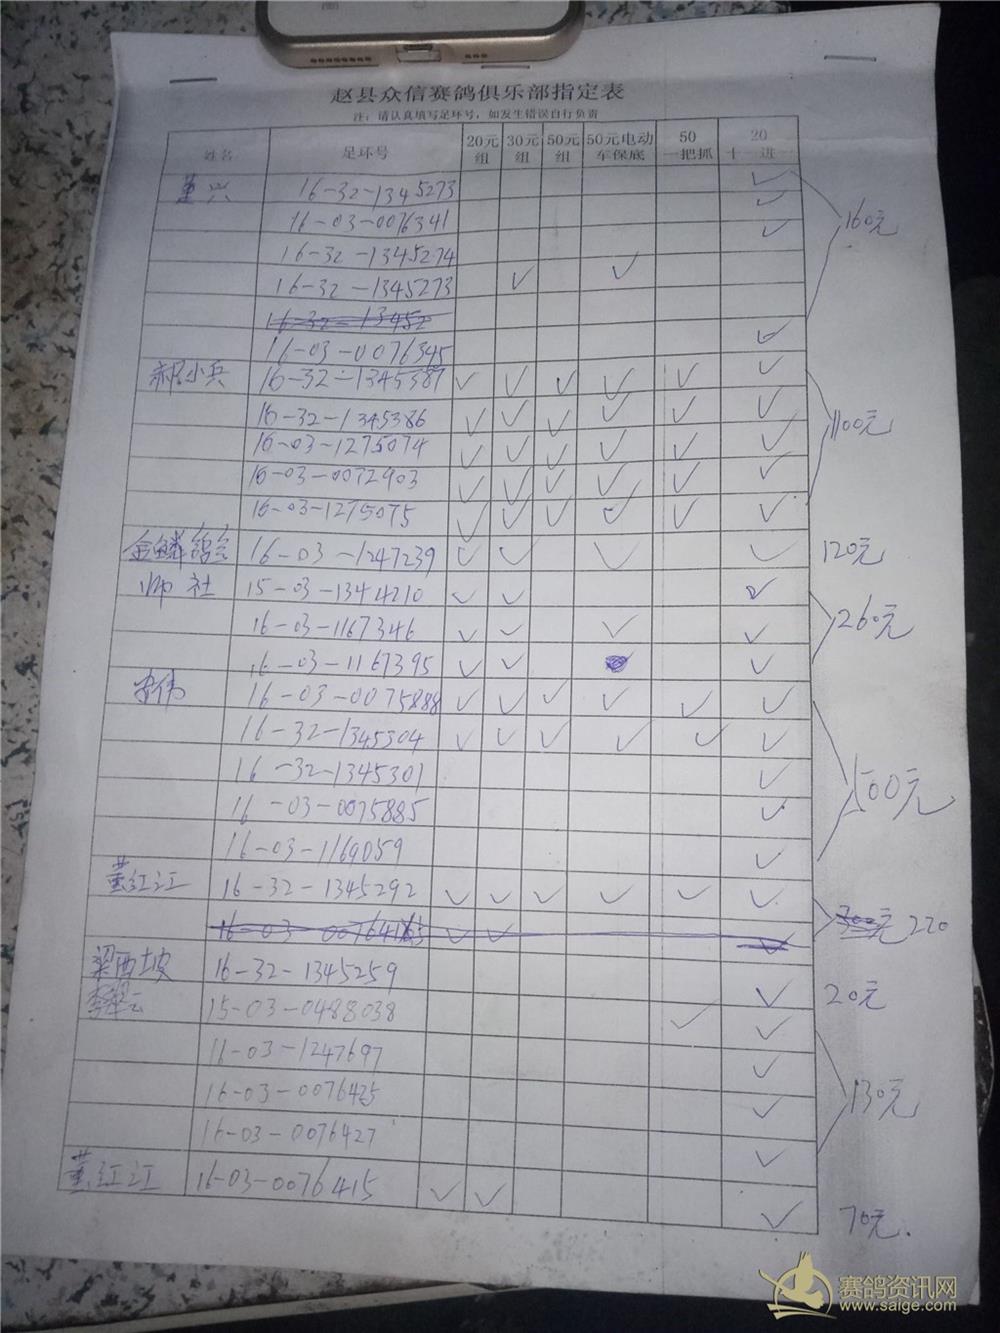 赵县众信赛鸽俱乐部指定表
注：请认真填写足环号，如发生错误自行负责
姓名 足环号 20元组 30元组 50元组 50元电动车保底 50一把抓 20十一进一
董兴 16-32-1345273 ✓
16-03-0076341 ✓ 160元
16-32-1345274 ✓
16-32-1345273 ✓ ✓
16-32-13452
16-03-0076345 ✓
郝小兵 16-32-1345387 ✓ ✓ ✓ ✓ ✓ ✓
16-32-1345386 ✓ ✓ ✓ ✓ ✓ ✓ 1100元
16-03-1275074 ✓ ✓ ✓ ✓ ✓ ✓
16-03-0072903 ✓ ✓ ✓ ✓ ✓ ✓
16-03-1275075 ✓ ✓ ✓ ✓ ✓ ✓
金鳞鸽舍 16-03-1247239 ✓ ✓ ✓ ✓ 120元
师社 15-03-1344210 ✓ ✓ ✓
16-03-1167346 ✓ ✓ ✓ ✓ 260元
16-03-1167395 ✓ ✓ ✓
安伟 16-03-0075888 ✓ ✓ ✓ ✓ ✓ ✓
16-32-1345304 ✓ ✓ ✓ ✓ ✓ ✓
16-32-1345301 ✓ 500元
16-03-0075885 ✓
16-03-1169059 ✓
董红江 16-32-1345292 ✓ ✓ ✓ ✓ ✓ ✓
16-03 ✓ ✓ ✓ 元 220
梁西坡 16-32-1345259 ✓ 20元
15-03-0488038 ✓ ✓
16-03-1247697 ✓
16-03-0076425 ✓ 130元
16-03-0076427 ✓
董红江 16-03-0076415 ✓ ✓ ✓ 70元.
赛鸽资讯网
www.saige.com